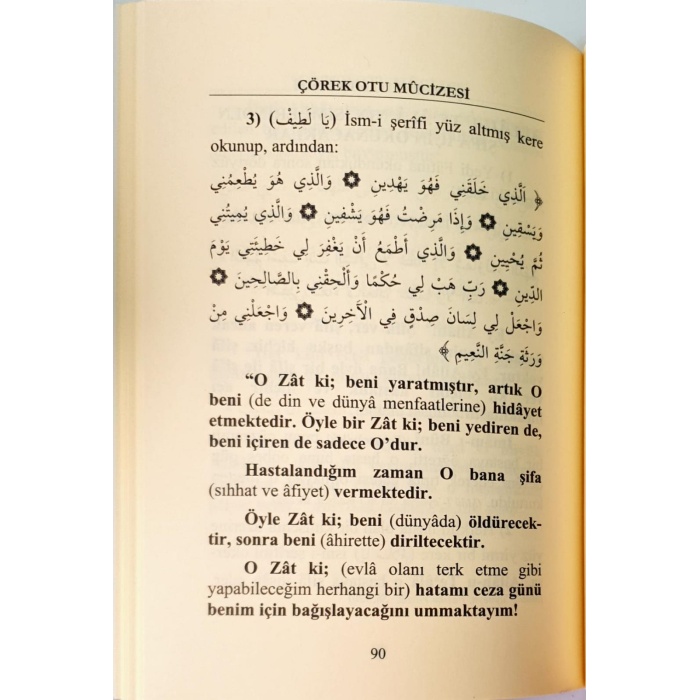 ÇÖREK OTU MÛCİZESİ
3) (يَا لَطِيفْ) İsm-i şerîfi yüz altmış kere
okunup, ardından:
﴿ اَلَّذِي خَلَقَنِي فَهُوَ يَهْدِينِ ۞ وَالَّذِي هُوَ يُطْعِمُنِي
وَيَسْقِينِ ۞ وَإِذَا مَرِضْتُ فَهُوَ يَشْفِينِ ۞ وَالَّذِي يُمِيتُنِي
ثُمَّ يُحْيِينِ ۞ وَالَّذِي أَطْمَعُ أَنْ يَغْفِرَ لِي خَطِيئَتِي يَوْمَ
الدِّينِ ۞ رَبِّ هَبْ لِي حُكْمًا وَأَلْحِقْنِي بِالصَّالِحِينَ ۞
وَاجْعَلْ لِي لِسَانَ صِدْقٍ فِي الْآخِرِينَ ۞ وَاجْعَلْنِي مِنْ
وَرَثَةِ جَنَّةِ النَّعِيمِ ﴾
“O Zât ki; beni yaratmıştır, artık O
beni (de din ve dünyâ menfaatlerine) hidâyet
etmektedir. Öyle bir Zât ki; beni yediren de,
beni içiren de sadece O’dur.
Hastalandığım zaman O bana şifa
(sıhhat ve âfiyet) vermektedir.
Öyle Zât ki; beni (dünyâda) öldürecek-
tir, sonra beni (âhirette) diriltecektir.
O Zât ki; (evlâ olanı terk etme gibi
yapabileceğim herhangi bir) hatamı ceza günü
benim için bağışlayacağını ummaktayım!
90